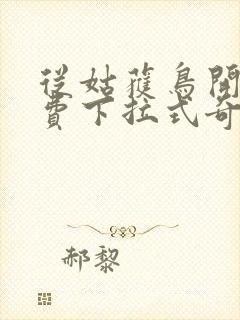 從姑獲鳥開
費下拉式奇
郝黎